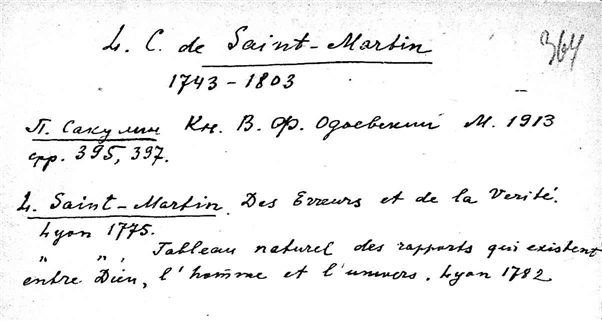 L. C. de Saint-Martin
364
1743 - 1803
П. Сакулин Кн. В. Ф. Одоевский М. 1913
стр. 395, 397.
L. Saint-Martin. Des Erreurs et de la Verité.
Lyon 1775.
" ", Tableau naturel des rapports qui existent
entre Dieu, l'homme et l'univers. Lyon 1782